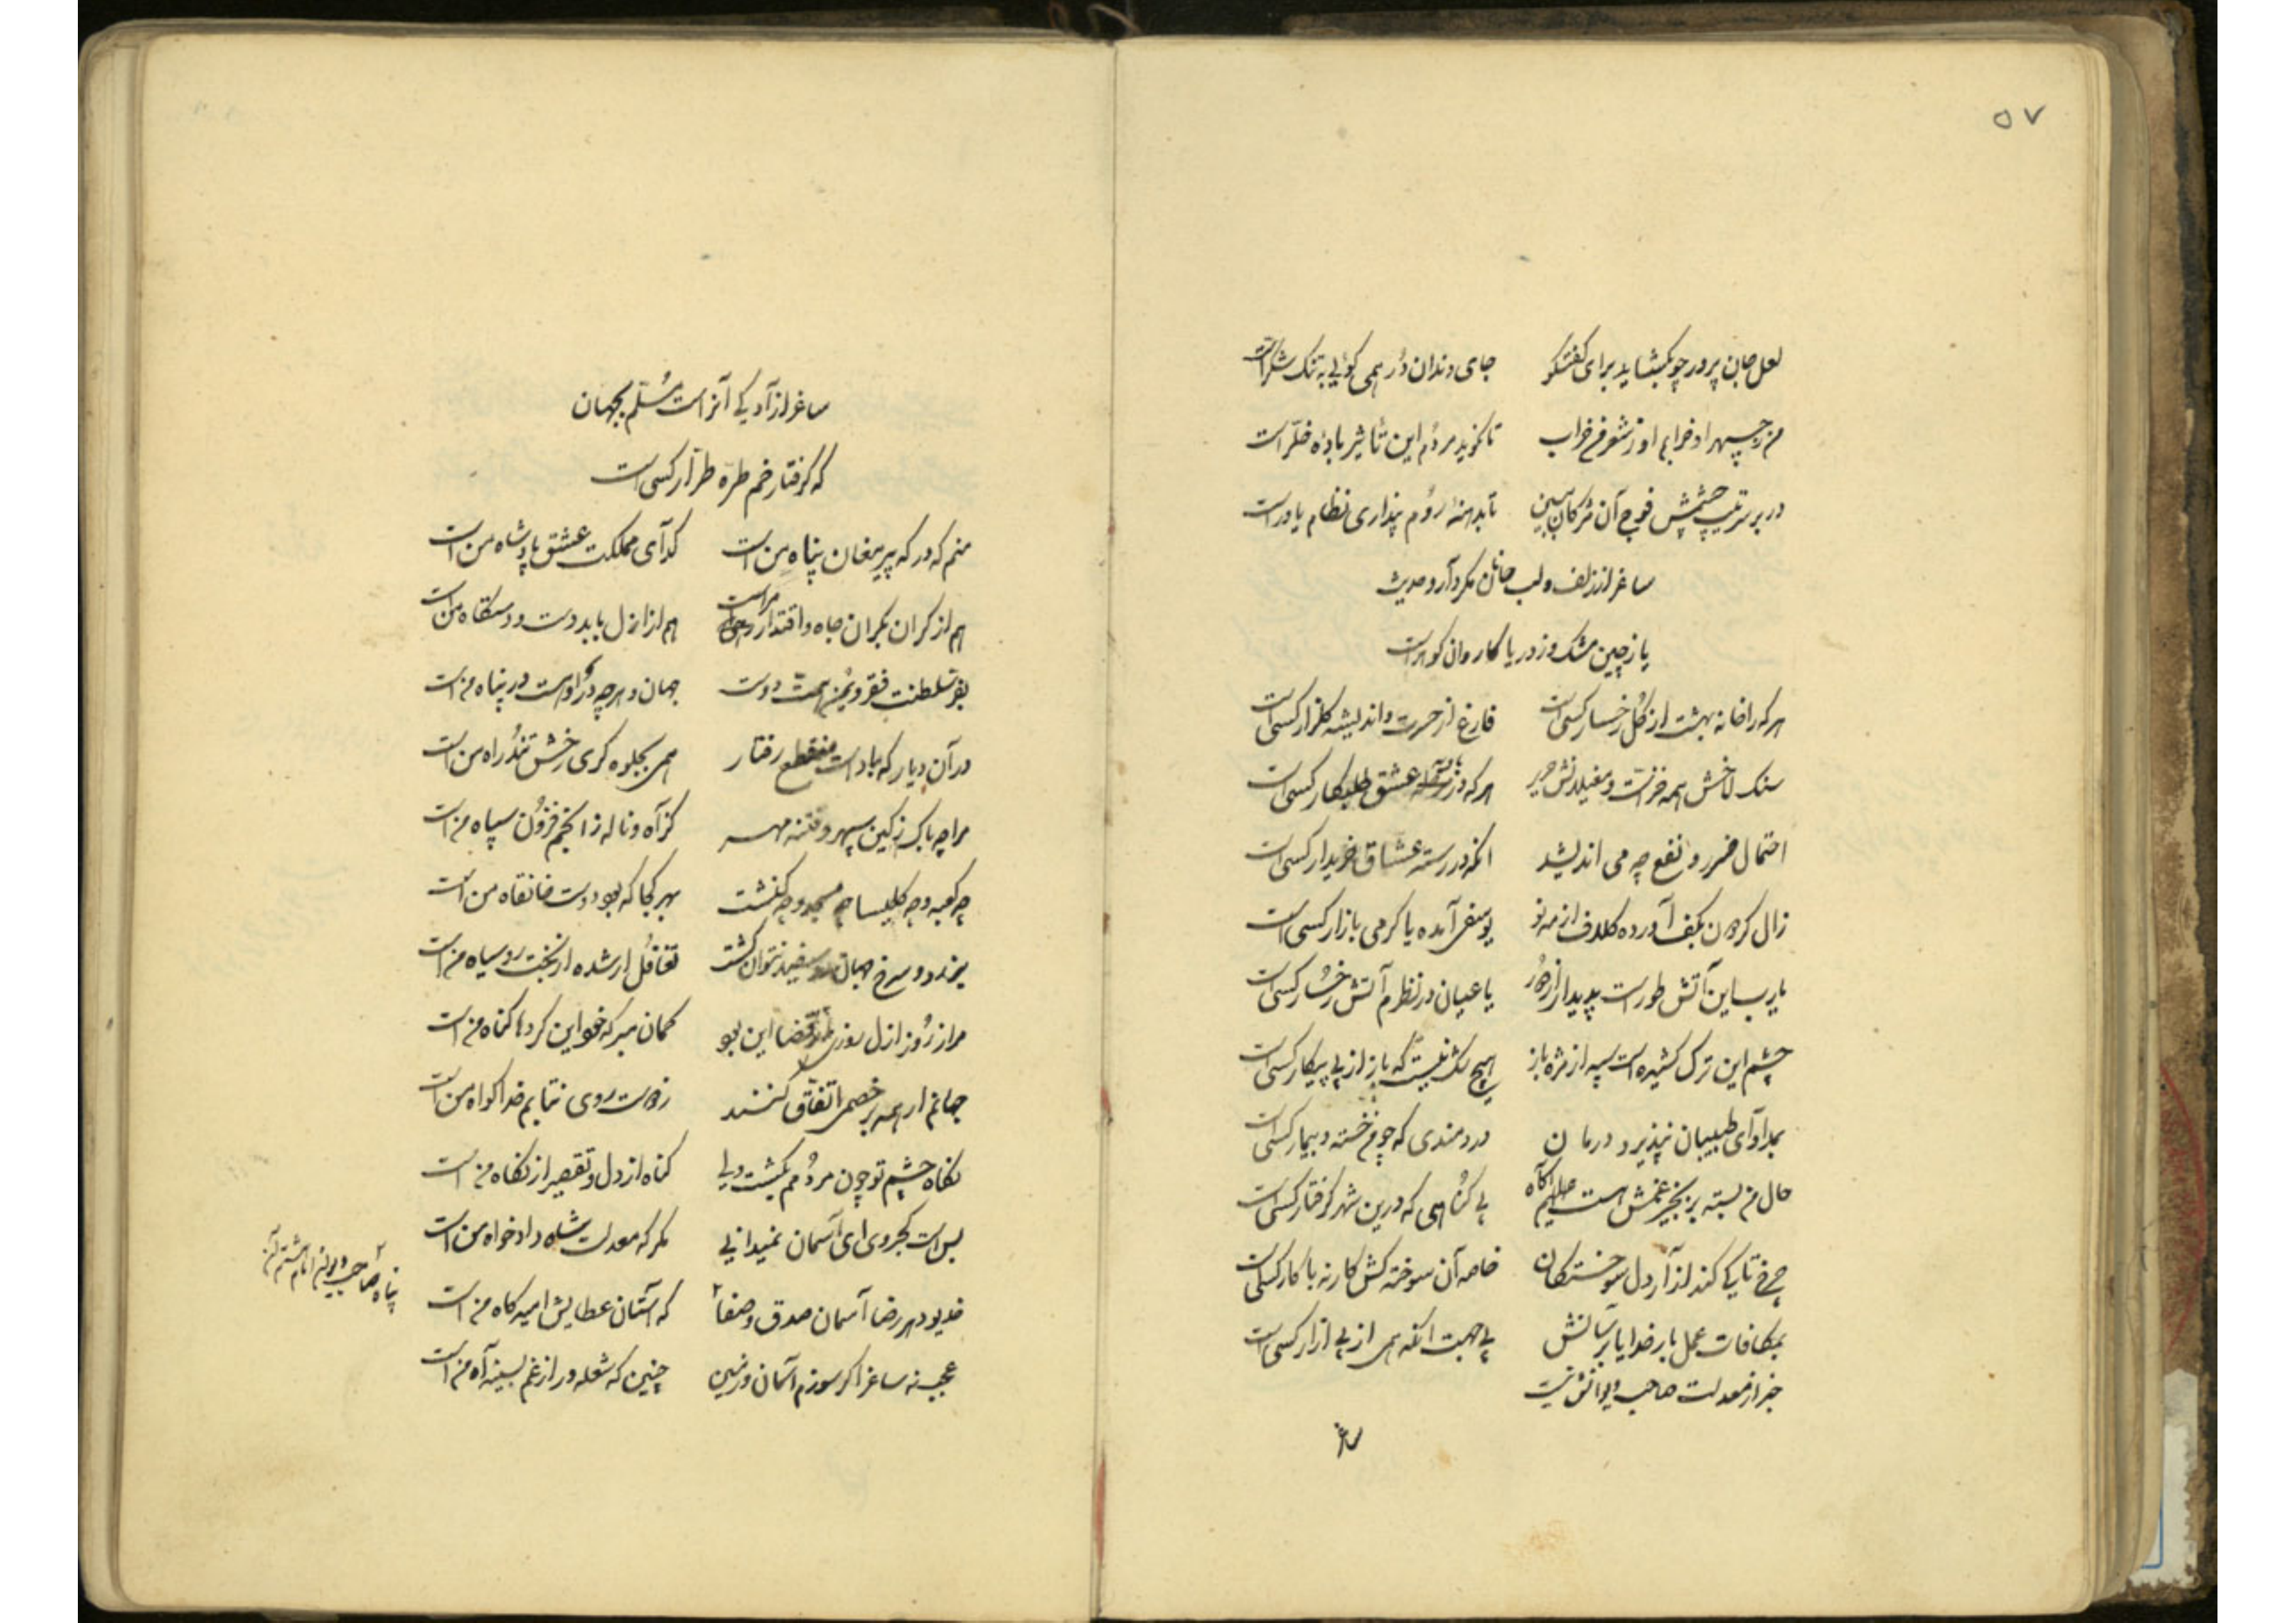 ۵۷
لعل جان پرور چو بگشاید برای گفتگو جای دندان دُر همی گویی به تنگ شکر است
من ز چهر او خرابم او ز شعر من خراب تا نگوید مردم این تأثیر بادهٔ خلّر است
در بر ترتیب چشمش فوج آن مژگان ببین تا بدانی روم پنداری نظام یاور است
ساغر از زلف و لب جانان مگر دارد حدیث
یا ز چین مشک و ز دریا کاروان گوهر است
هر که را خانه بهشت از گل رخسار کسی است فارغ از حسرت و اندیشه گلزار کسی است
سنگ لاخش همه خز است و مغیلانش حریر هر که در عشق طلبکار کسی است
احتمال ضرر و نفع چه می اندیشد آنکه در رسته عشاق خریدار کسی است
زال گردون بکف آورده کلاف از مه نو یوسفی آمده یا گرمی بازار کسی است
یارب این آتش طور است پدیدار از دور یا عیان در نظرم آتش رخسار کسی است
چشم این ترک کشیده است سپه از مژه باز هیچ شک نیست که باز از پی پیکار کسی است
بمداوآی طبیبان نپذیرد درمان دردمندی که چو من خسته و بیمار کسی است
حال من بسته بزنجیر غمش هست آگاه بی گناهی که درین شهر گرفتار کسی است
چرخ تا کی کند آزار دل سوختگان خاصه آن سوخته کش کار نه با کار کسی است
بمکافات عمل بار خدایا برسانش بی جهت آنکه همی از پی آزار کسی است
خبر از معدلت صاحب دیوانش نیست
ساغر
ساغر آزادگی آنراست مُسلّم بجهان
که گرفتار خم طرّه طرّار کسی است
منم که درگه پیر مغان پناه من است گدآی مملکت عشق پادشاه من است
هم از کران بکران جاه و اقتدار مراست هم از ازل بابد دست و دستگاه من است
بفر سلطنت فقر و یُمن همت دوست جهان و هر چه در او هست در پناه من است
در آن دیار که باد است منقطع رفتار همی بجلوه گری رخش تند راه من است
مرا چه باک ز کین سپهر و فتنه مهر کز آه و ناله ز انجم فزون سپاه من است
چه کعبه و چه کلیسا چه مسجد و چه کنشت بهر کجا که بود دوست خانقاه من است
جهان سفید نتوان گشت تغافل ار شده از بخت رو سیاه من است
مرا ز روز ازل روزی از قضا این بود گمان مبر که خود این کرده‌ها گناه من است
جهانم ار همه بر خصمی اتفاق کنند ز دوست روی نتابم خدا گواه من است
نگاه چشم تو چون مردُمم بکشت ولی گناه از دل و تقصیر از نگاه من است
بس است کجروی ای آسمان نمیدانی مگر که معدلت شاه دادخواه من است
خدیو دهر رضا آسمان صدق و صفا که آستان عطایش امیدگاه من است
پناه صاحب دیوان امام هشتم آن
عجب نه ساغر اگر سوزم آسمان و زمین چنین که شعله ور از غم بسینه آه من است